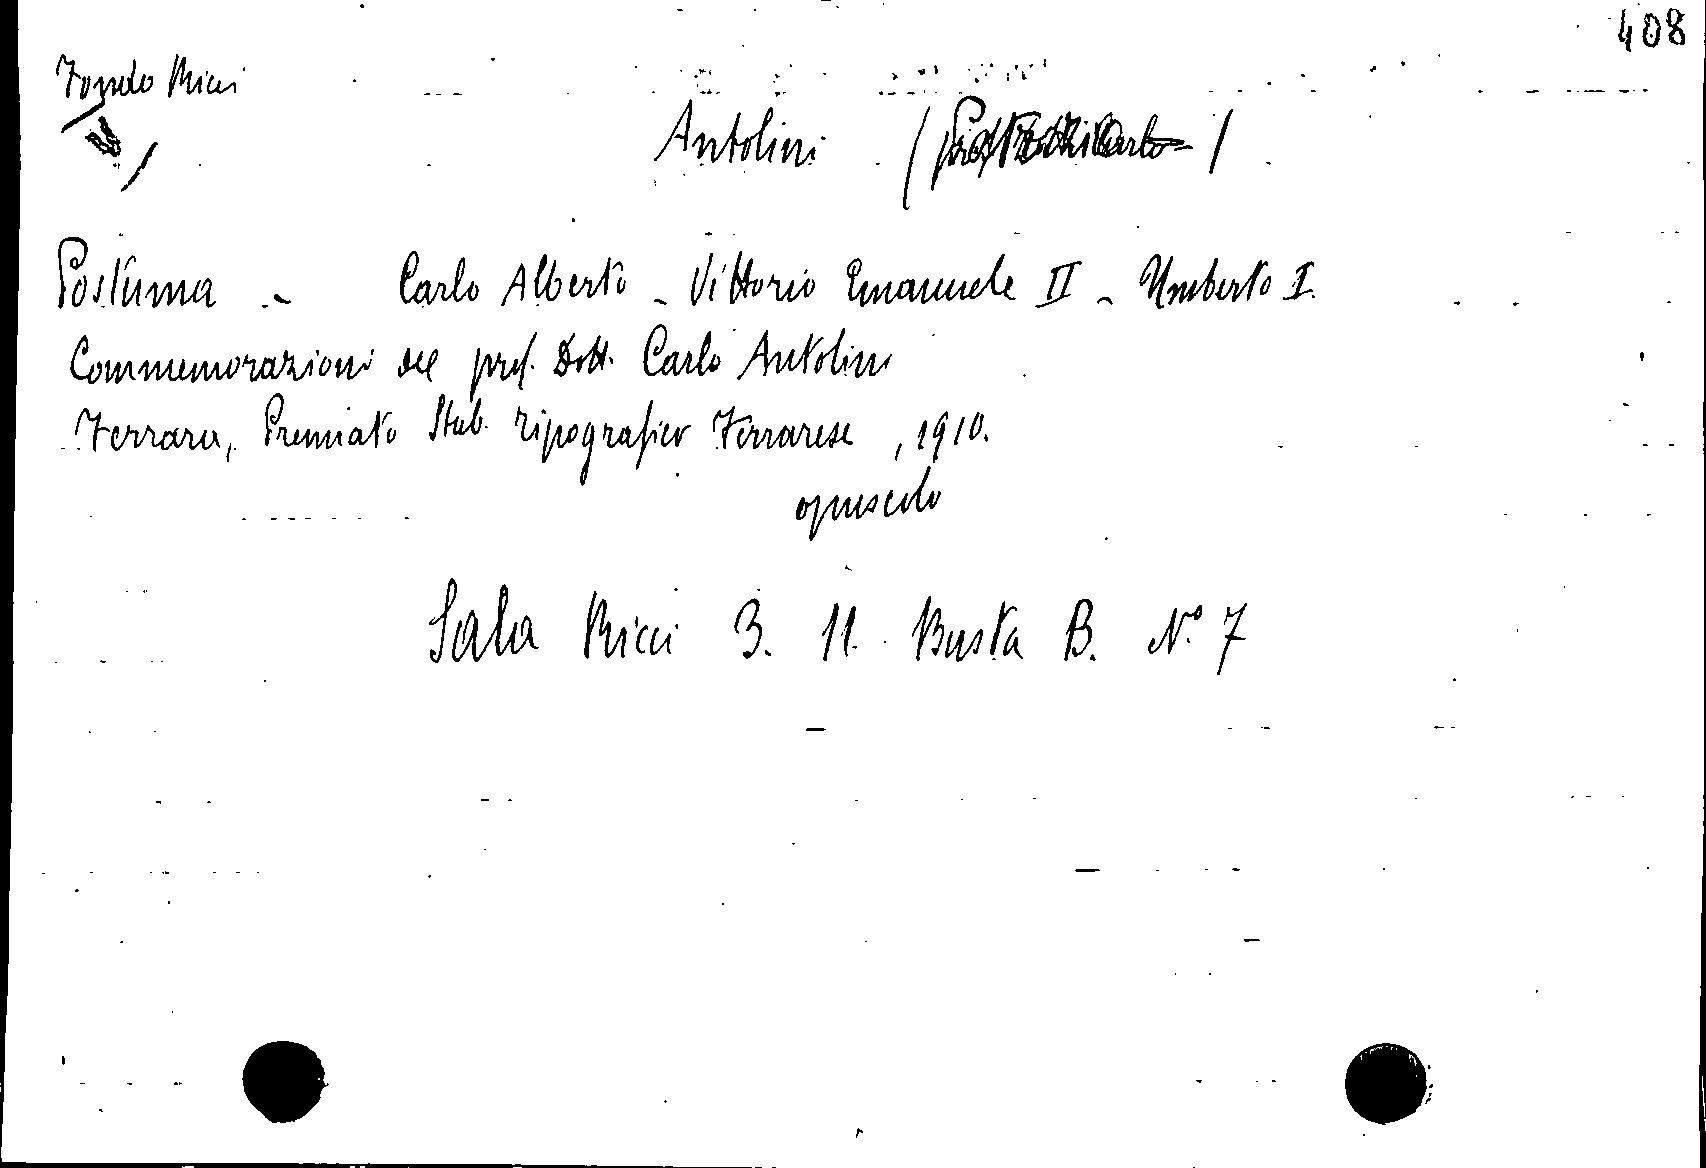 408
Fondo Ricci
Antolini ( Carlo )
Postuma - Carlo Alberto - Vittorio Emanuele II - Umberto I.
Commemorazioni del prof. Dott. Carlo Antolini
Ferrara, Premiato Stab. Tipografico Ferrarese, 1910.
opuscolo
Sala Ricci 3. 11. Busta B. N.º 7